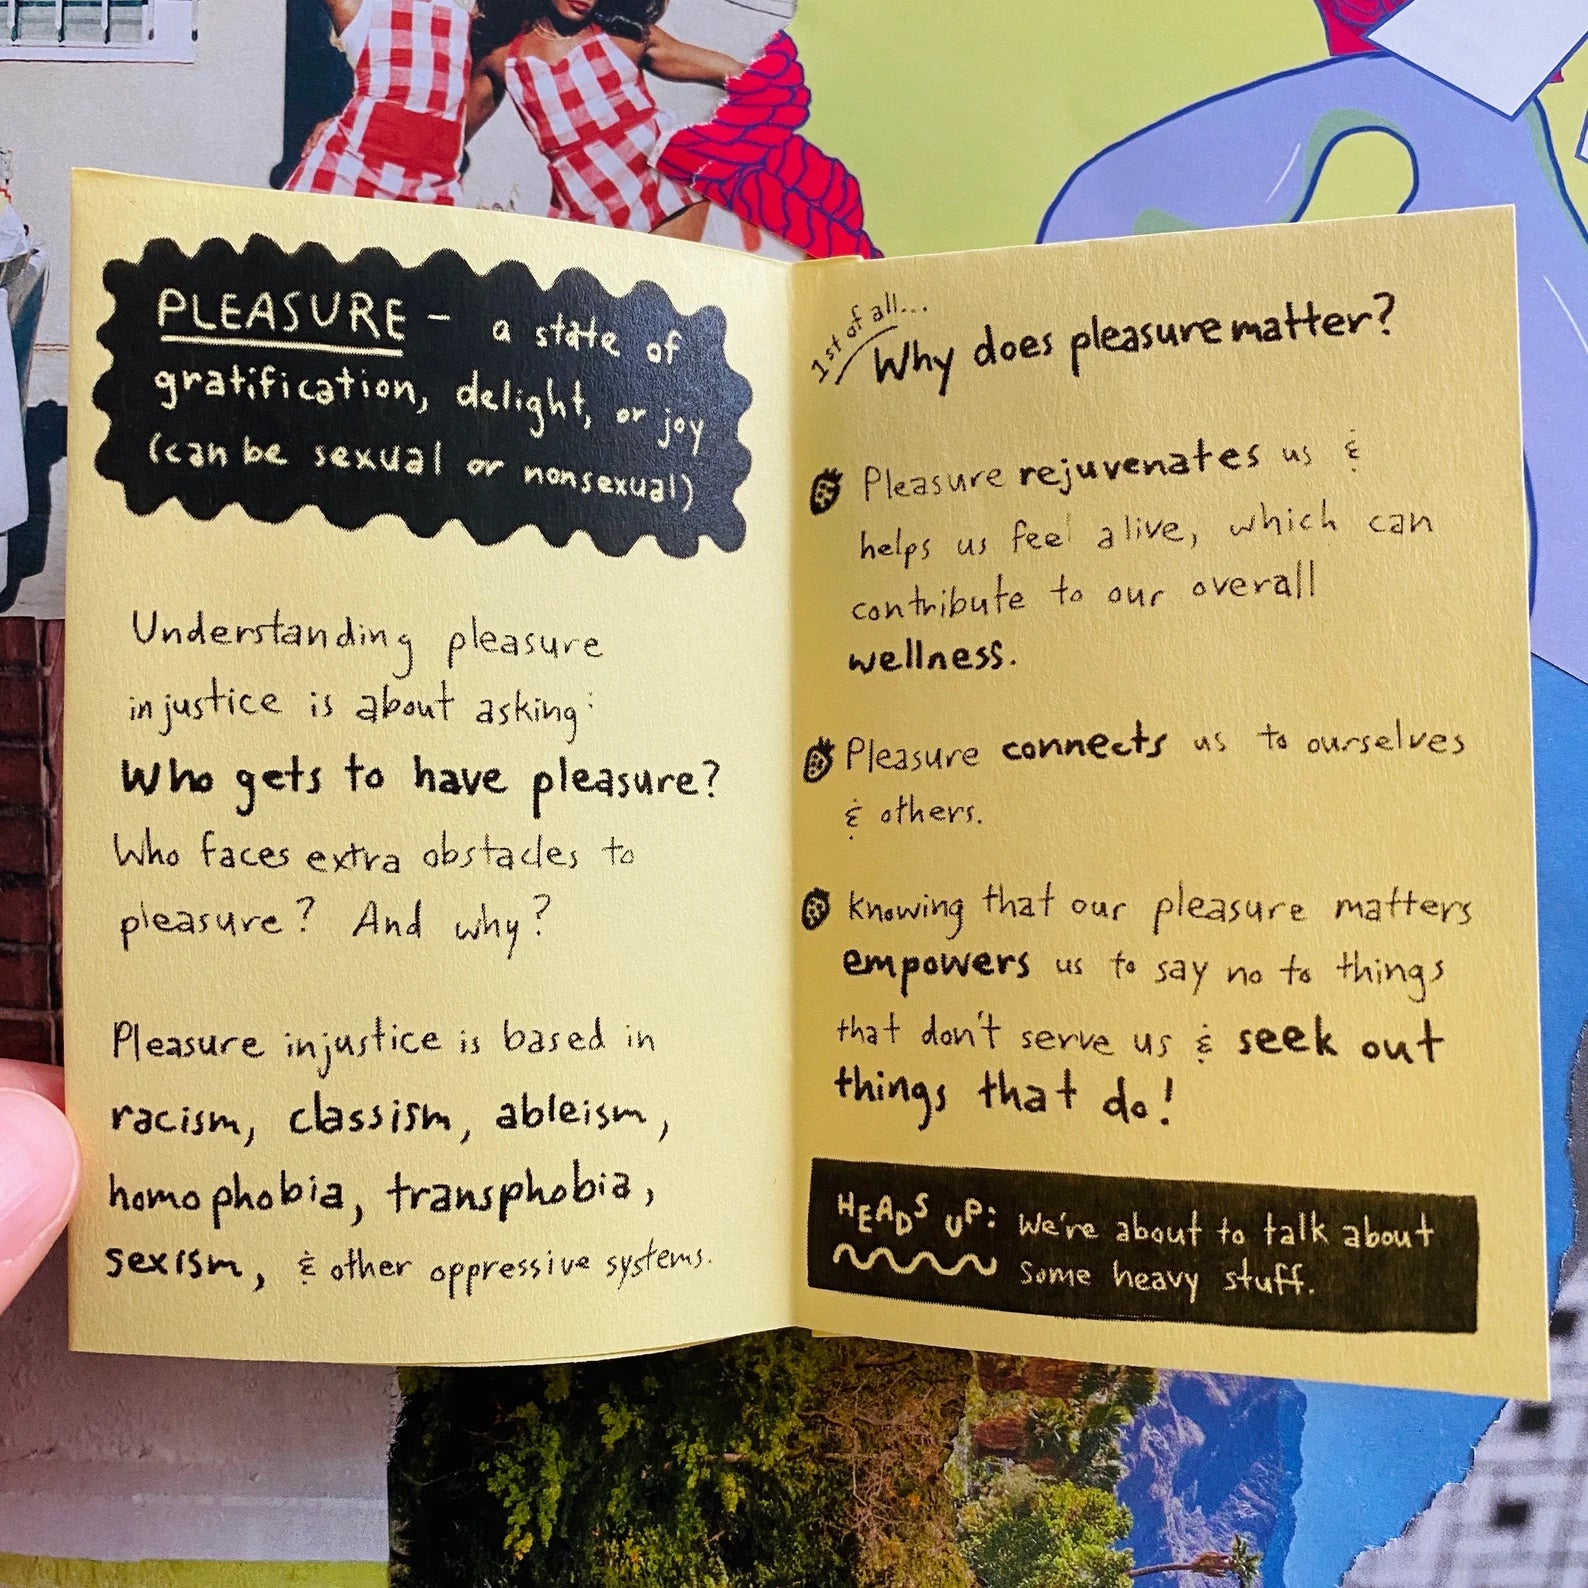 PLEASURE - a state of
gratification, delight, or joy
(can be sexual or nonsexual)
Understanding pleasure
injustice is about asking:
Who gets to have pleasure?
Who faces extra obstacles to
pleasure? And why?
Pleasure injustice is based in
racism, classism, ableism,
homophobia, transphobia,
sexism, & other oppressive systems.
1st of all...
Why does pleasure matter?
Pleasure rejuvenates us &
helps us feel alive, which can
contribute to our overall
wellness.
Pleasure connects us to ourselves
& others.
Knowing that our pleasure matters
empowers us to say no to things
that don't serve us & seek out
things that do!
HEADS UP: We're about to talk about
some heavy stuff.